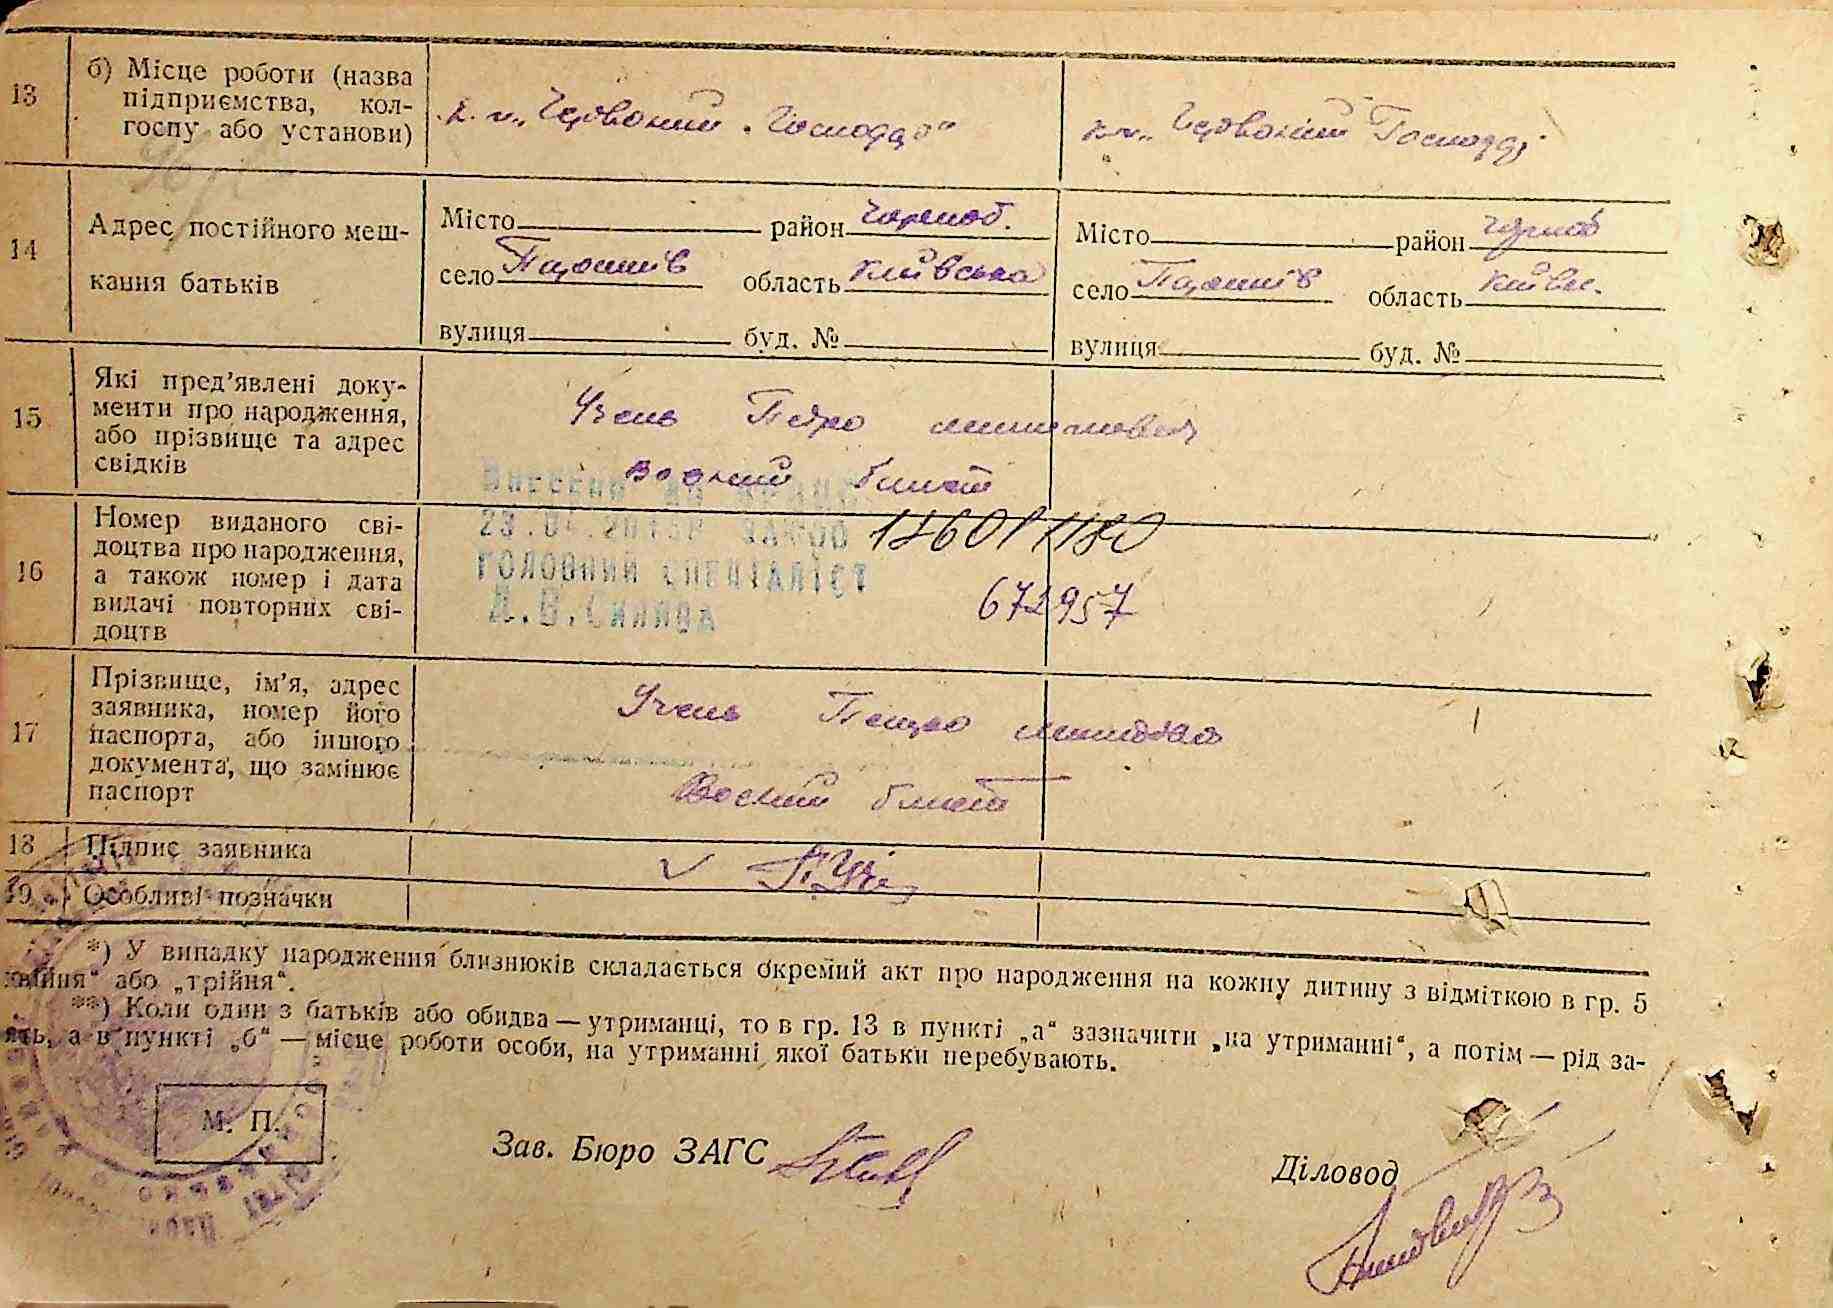 13
б) Місце роботи (назва
підприємства, кол-
госпу або установи)
к. г. „Червоний Господар"
к г „Червоний Господар
14
Адрес постійного меш-
кання батьків
Місто район Чорноб.
село Парошнів область Київська
вулиця буд. №
Місто район Чорноб
село Парошнів область Київс.
вулиця буд. №
15
Які пред'явлені доку-
менти про народження,
або прізвище та адрес
свідків
Учень Петро
Воєний білет
16
Номер виданого сві-
доцтва про народження,
а також номер і дата
видачі повторних сві-
доцтв
ГОЛОВНИЙ СПЕЦІАЛІСТ
672957
17
Прізвище, ім'я, адрес
заявника, номер його
паспорта, або іншого
документа, що замінює
паспорт
Учень Петро
Воєний білет
18
Підпис заявника
П. Уче
19
Особливі позначки
*) У випадку народження близнюків складається окремий акт про народження на кожну дитину з відміткою в гр. 5
„двійня" або „трійня".
**) Коли один з батьків або обидва — утриманці, то в гр. 13 в пункті „а" зазначити „на утриманні", а потім — рід за-
ять, а в пункті „б" — місце роботи особи, на утриманні якої батьки перебувають.
М. П.
Зав. Бюро ЗАГС
Діловод